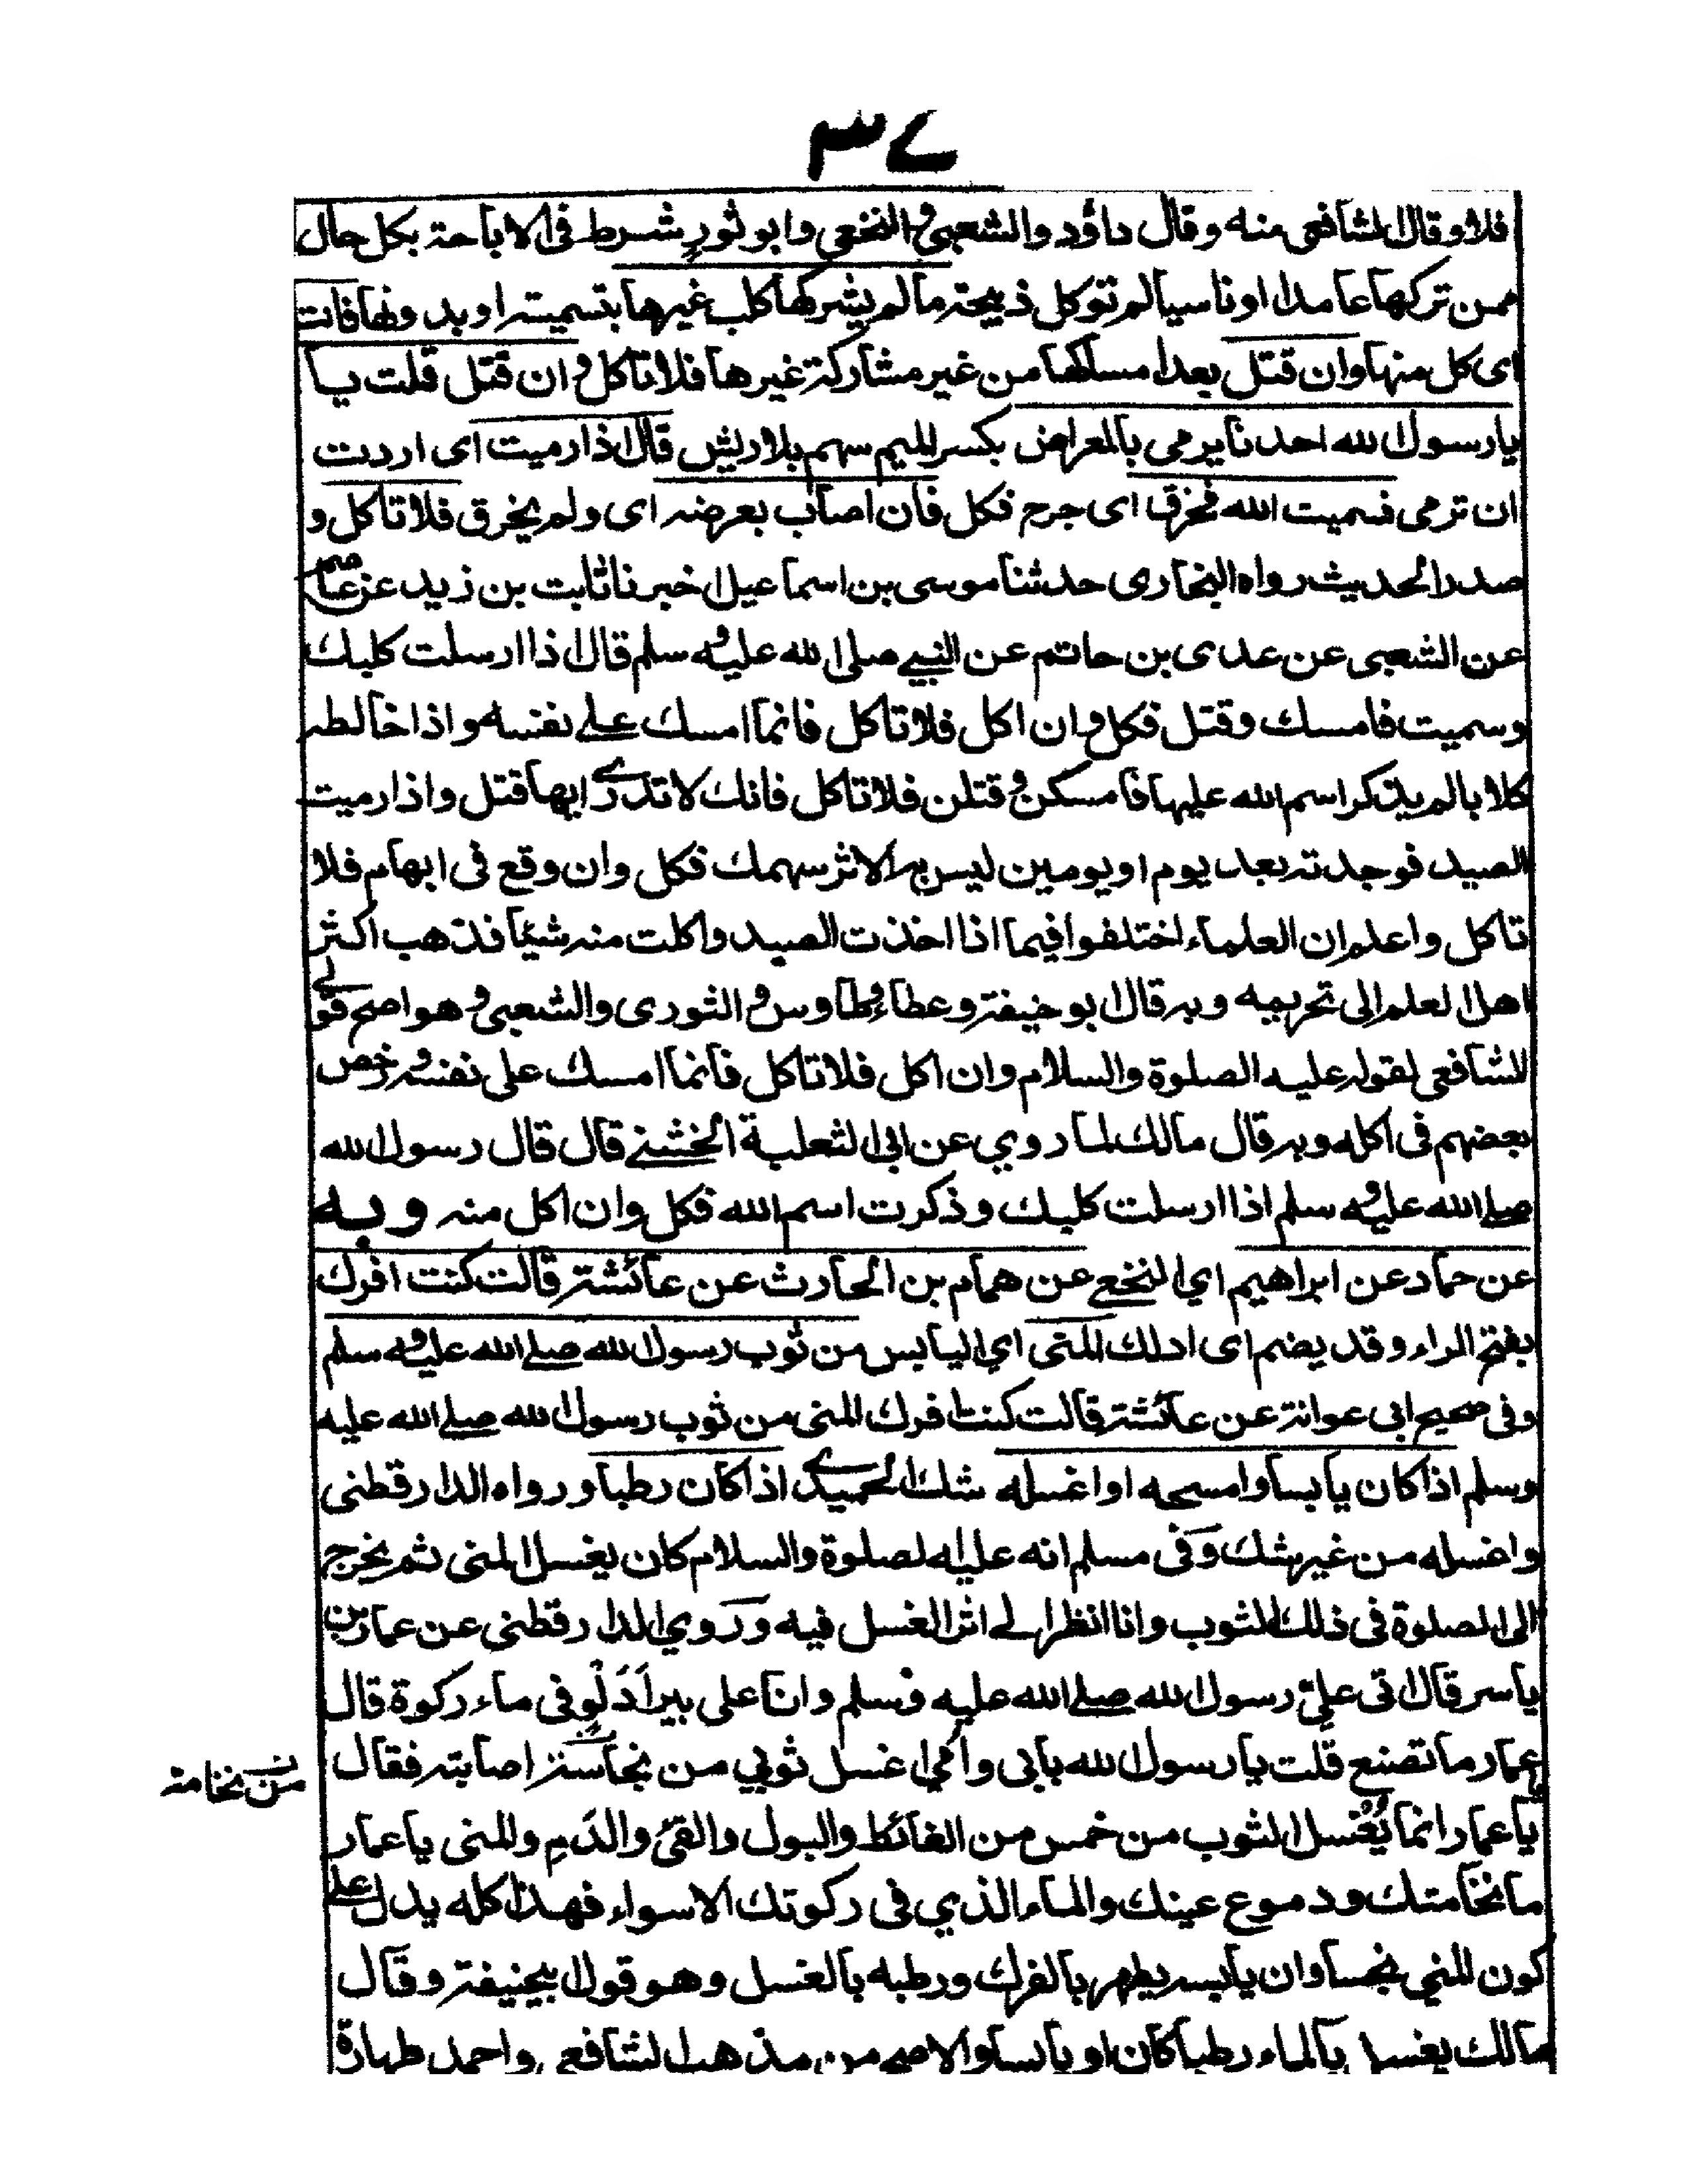 ٣٧
فلا وقال الشافعي منه وقال داؤد والشعبي والنخعي وابو ثور شرط في الاباحة بكل حال
ممن تركها عامدا او ناسيا لم توكل ذبيحته ما لم يشركها كلب غيرها بتسميته او بدونها فان
اى كل منها وان قتل بعد امساكها من غير مشاركة غيرها فلا تاكل وان قتل قلت يا
يا رسول الله احدنا يرمى بالمعراض بكسر الميم سهم بلا ريش قال اذا رميت اى اردت
ان ترمى فسميت الله فخزق اى جرح فكل فان اصاب بعرضه اى ولم يخرق فلا تاكل و
صدر الحديث رواه البخارى حدثنا موسى بن اسماعيل اخبرنا ثابت بن زيد عن عاصم
عن الشعبى عن عدى بن حاتم عن النبي صلى الله عليه وسلم قال اذا ارسلت كلبك
وسميت فامسك وقتل فكل وان اكل فلا تاكل فانما امسك على نفسه واذا خالطه
كلابا لم يذكر اسم الله عليها فامسكن وقتلن فلا تاكل فانك لا تدرے ايها قتل واذا رميت
الصيد فوجدته بعد يوم او يومين ليس به الا اثر سهمك فكل وان وقع فى ابهام فلا
تاكل واعلم ان العلماء اختلفوا فيما اذا اخذت الصيد واكلت منه شيئا فذهب اكثر
اهل العلم الى تحريمه وبه قال ابو حنيفة وعطاء وطاوس والثورى والشعبى وهو اصح قولے
للشافعى لقوله عليه الصلوة والسلام وان اكل فلا تاكل فانما امسك على نفسه ورخص
بعضهم فى اكله وبه قال مالك لما روي عن ابى الثعلبة الخشنے قال قال رسول الله
صلے الله عليه وسلم اذا ارسلت كلبك وذكرت اسم الله فكل وان اكل منه وبه
عن حماد عن ابراهيم اي النخعے عن همام بن الحارث عن عائشة قالت كنت افرك
بفتح الراء وقد يضم اى ادلك المنى اي اليابس من ثوب رسول الله صلے الله عليه وسلم
وفى صحيح ابى عوانة عن عائشة قالت كنت افرك المنى من ثوب رسول الله صلے الله عليه
وسلم اذا كان يابسا وامسحه او اغسله شك الحميدے اذا كان رطبا ورواه الدارقطنى
واغسله من غير شك وفى مسلم انه عليه الصلوة والسلام كان يغسل المنى ثم يخرج
الى الصلوة فى ذلك الثوب وانا انظر الے اثر الغسل فيه وروي الدارقطنى عن عمار بن
ياسر قال اتى علىّ رسول الله صلے الله عليه وسلم وانا على بير اَدْلُو فى ماء ركوة قال
عمار ما تصنع قلت يا رسول الله بابى وامي اغسل ثوبي من نجاسة اصابته فقال
من نخامة
يا عمار انما يُغسل الثوب من خمس من الغائط والبول والقئ والدم والمنى يا عمار
ما نخامتك ودموع عينك والماء الذي فى ركوتك الا سواء فهذا كله يدل على
كون المنى نجسا وان يابسه يطهر بالفرك ورطبه بالغسل وهو قول ابيحنيفة وقال
مالك يغسل بالماء رطبا كان او يابسا والاصح من مذهب الشافعى واحمد طهارة